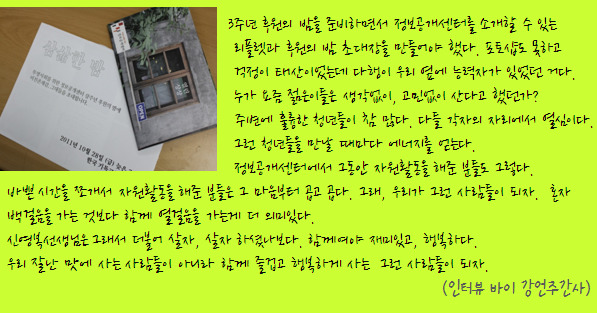 삶삶한 밤
2011년 10월 28일 (금) 늦은
한국 기독
OPEN
3주년 후원의 밤을 준비하면서 정보공개센터를 소개할 수 있는
리플렛과 후원의 밤 초대장을 만들어야 했다. 포토샵도 못하고
걱정이 태산이었는데 다행이 우리 옆에 능력자가 있었던 거다.
누가 요즘 젊은이들은 생각없이, 고민없이 산다고 했던가?
주변에 훌륭한 청년들이 참 많다. 다들 각자의 자리에서 열심이다.
그런 청년들을 만날 때마다 에너지를 얻는다.
정보공개센터에서 그동안 자원활동을 해준 분들도 그렇다.
바쁜 시간을 쪼개서 자원활동을 해준 분들은 그 마음부터 곱고 곱다. 그래, 우리가 그런 사람들이 되자. 혼자
백걸음을 가는 것보다 함께 열걸음을 가는게 더 의미있다.
신영복선생님은 그래서 더불어 살자, 살자 하셨나보다. 함께여야 재미있고, 행복하다.
우리 잘난 맛에 사는 사람들이 아니라 함께 즐겁고 행복하게 사는 그런 사람들이 되자.
(인터뷰 바이 강언주간사)